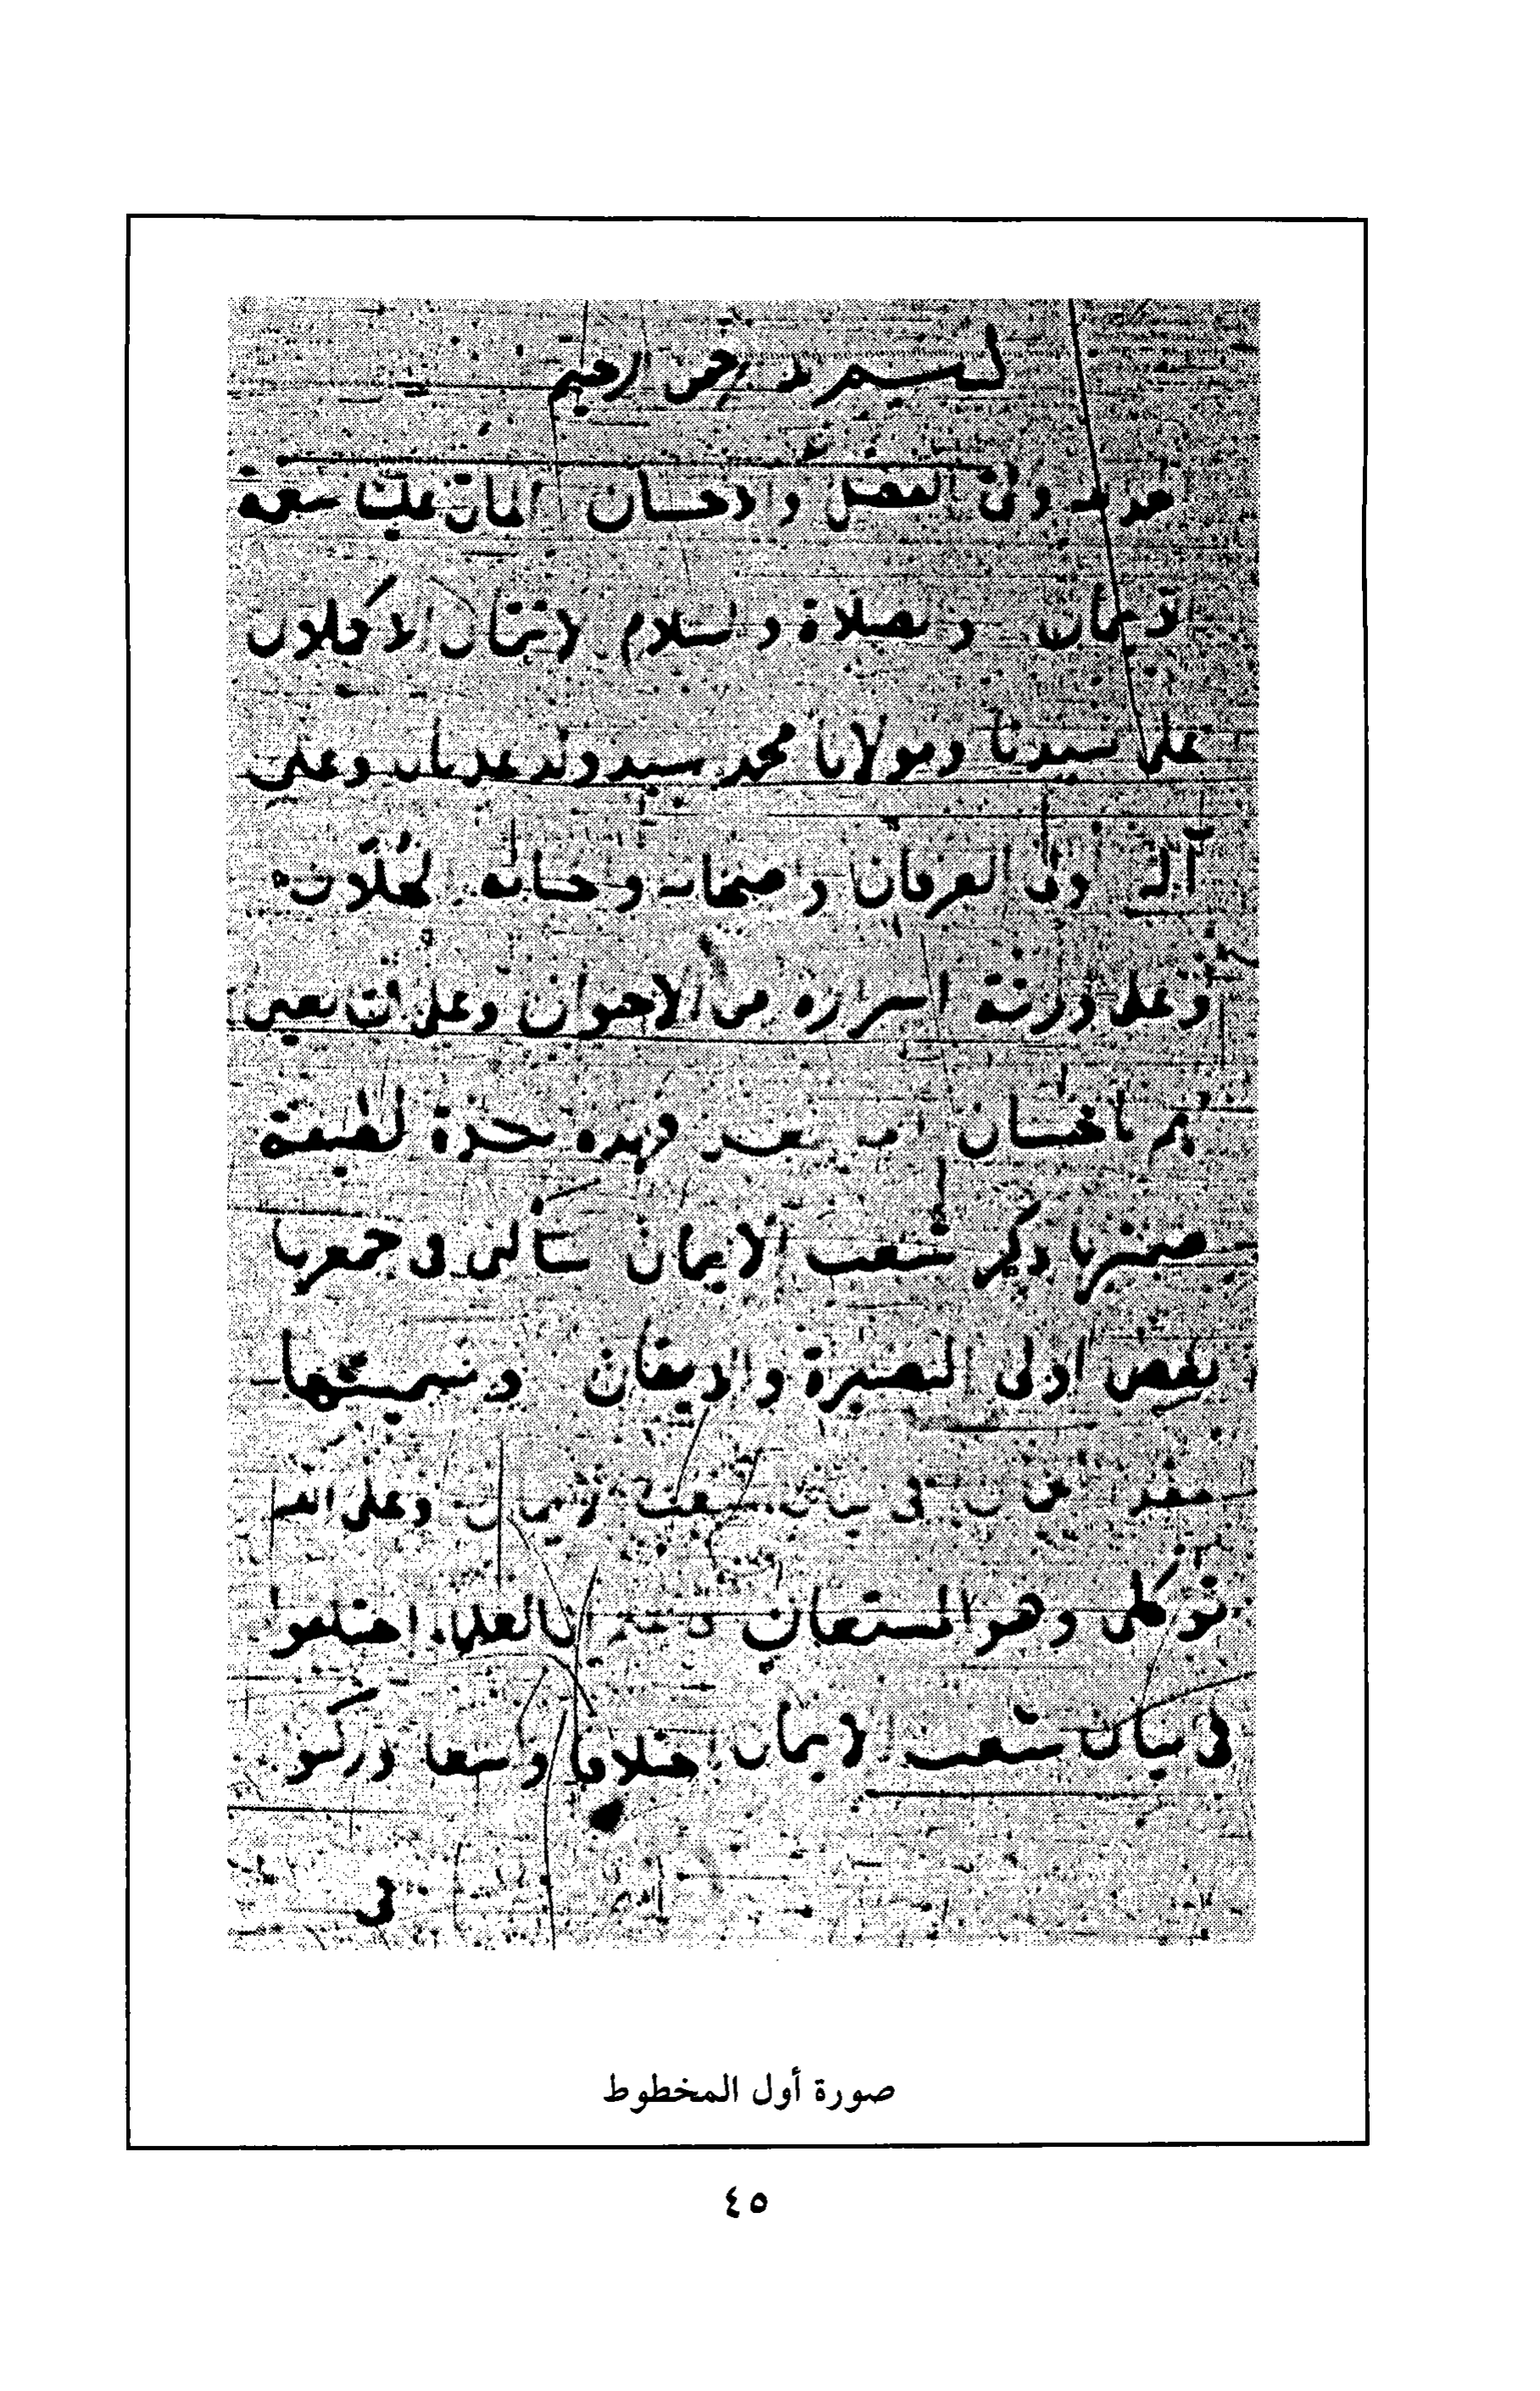 بسم الله الرحمن الرحيم
حمد لله ولى الفضل والاحسان المان علينا بنعمة
الايمان والصلاة والسلام الاتمان الاكملان
على سيدنا ومولانا محمد سيد ولد عدنان وعلى
آله اولى العرفان وصحابته
وعلى ورثة اسراره من الاخوان وعلى التابعين
لهم باحسان اما بعد فهذه لطيفة
ذكر شعب الايمان سألنى فى جمعها
بعض اولى البصيرة والايقان وسميتها
فى بيان شعب الايمان وعلى الله
توكلى وهو المستعان العلماء اختلفوا
فى بيان شعب الايمان اختلافا وسيعا وركبوا
فى
صورة أول المخطوط
٤٥